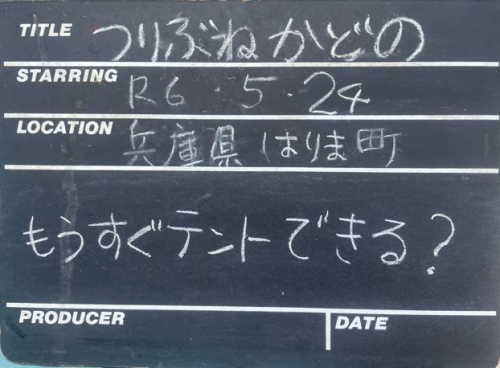 TITLE つりぶねかどの
STARRING R6.5.24
LOCATION 兵庫県はりま町
もうすぐテントできる?
PRODUCER DATE